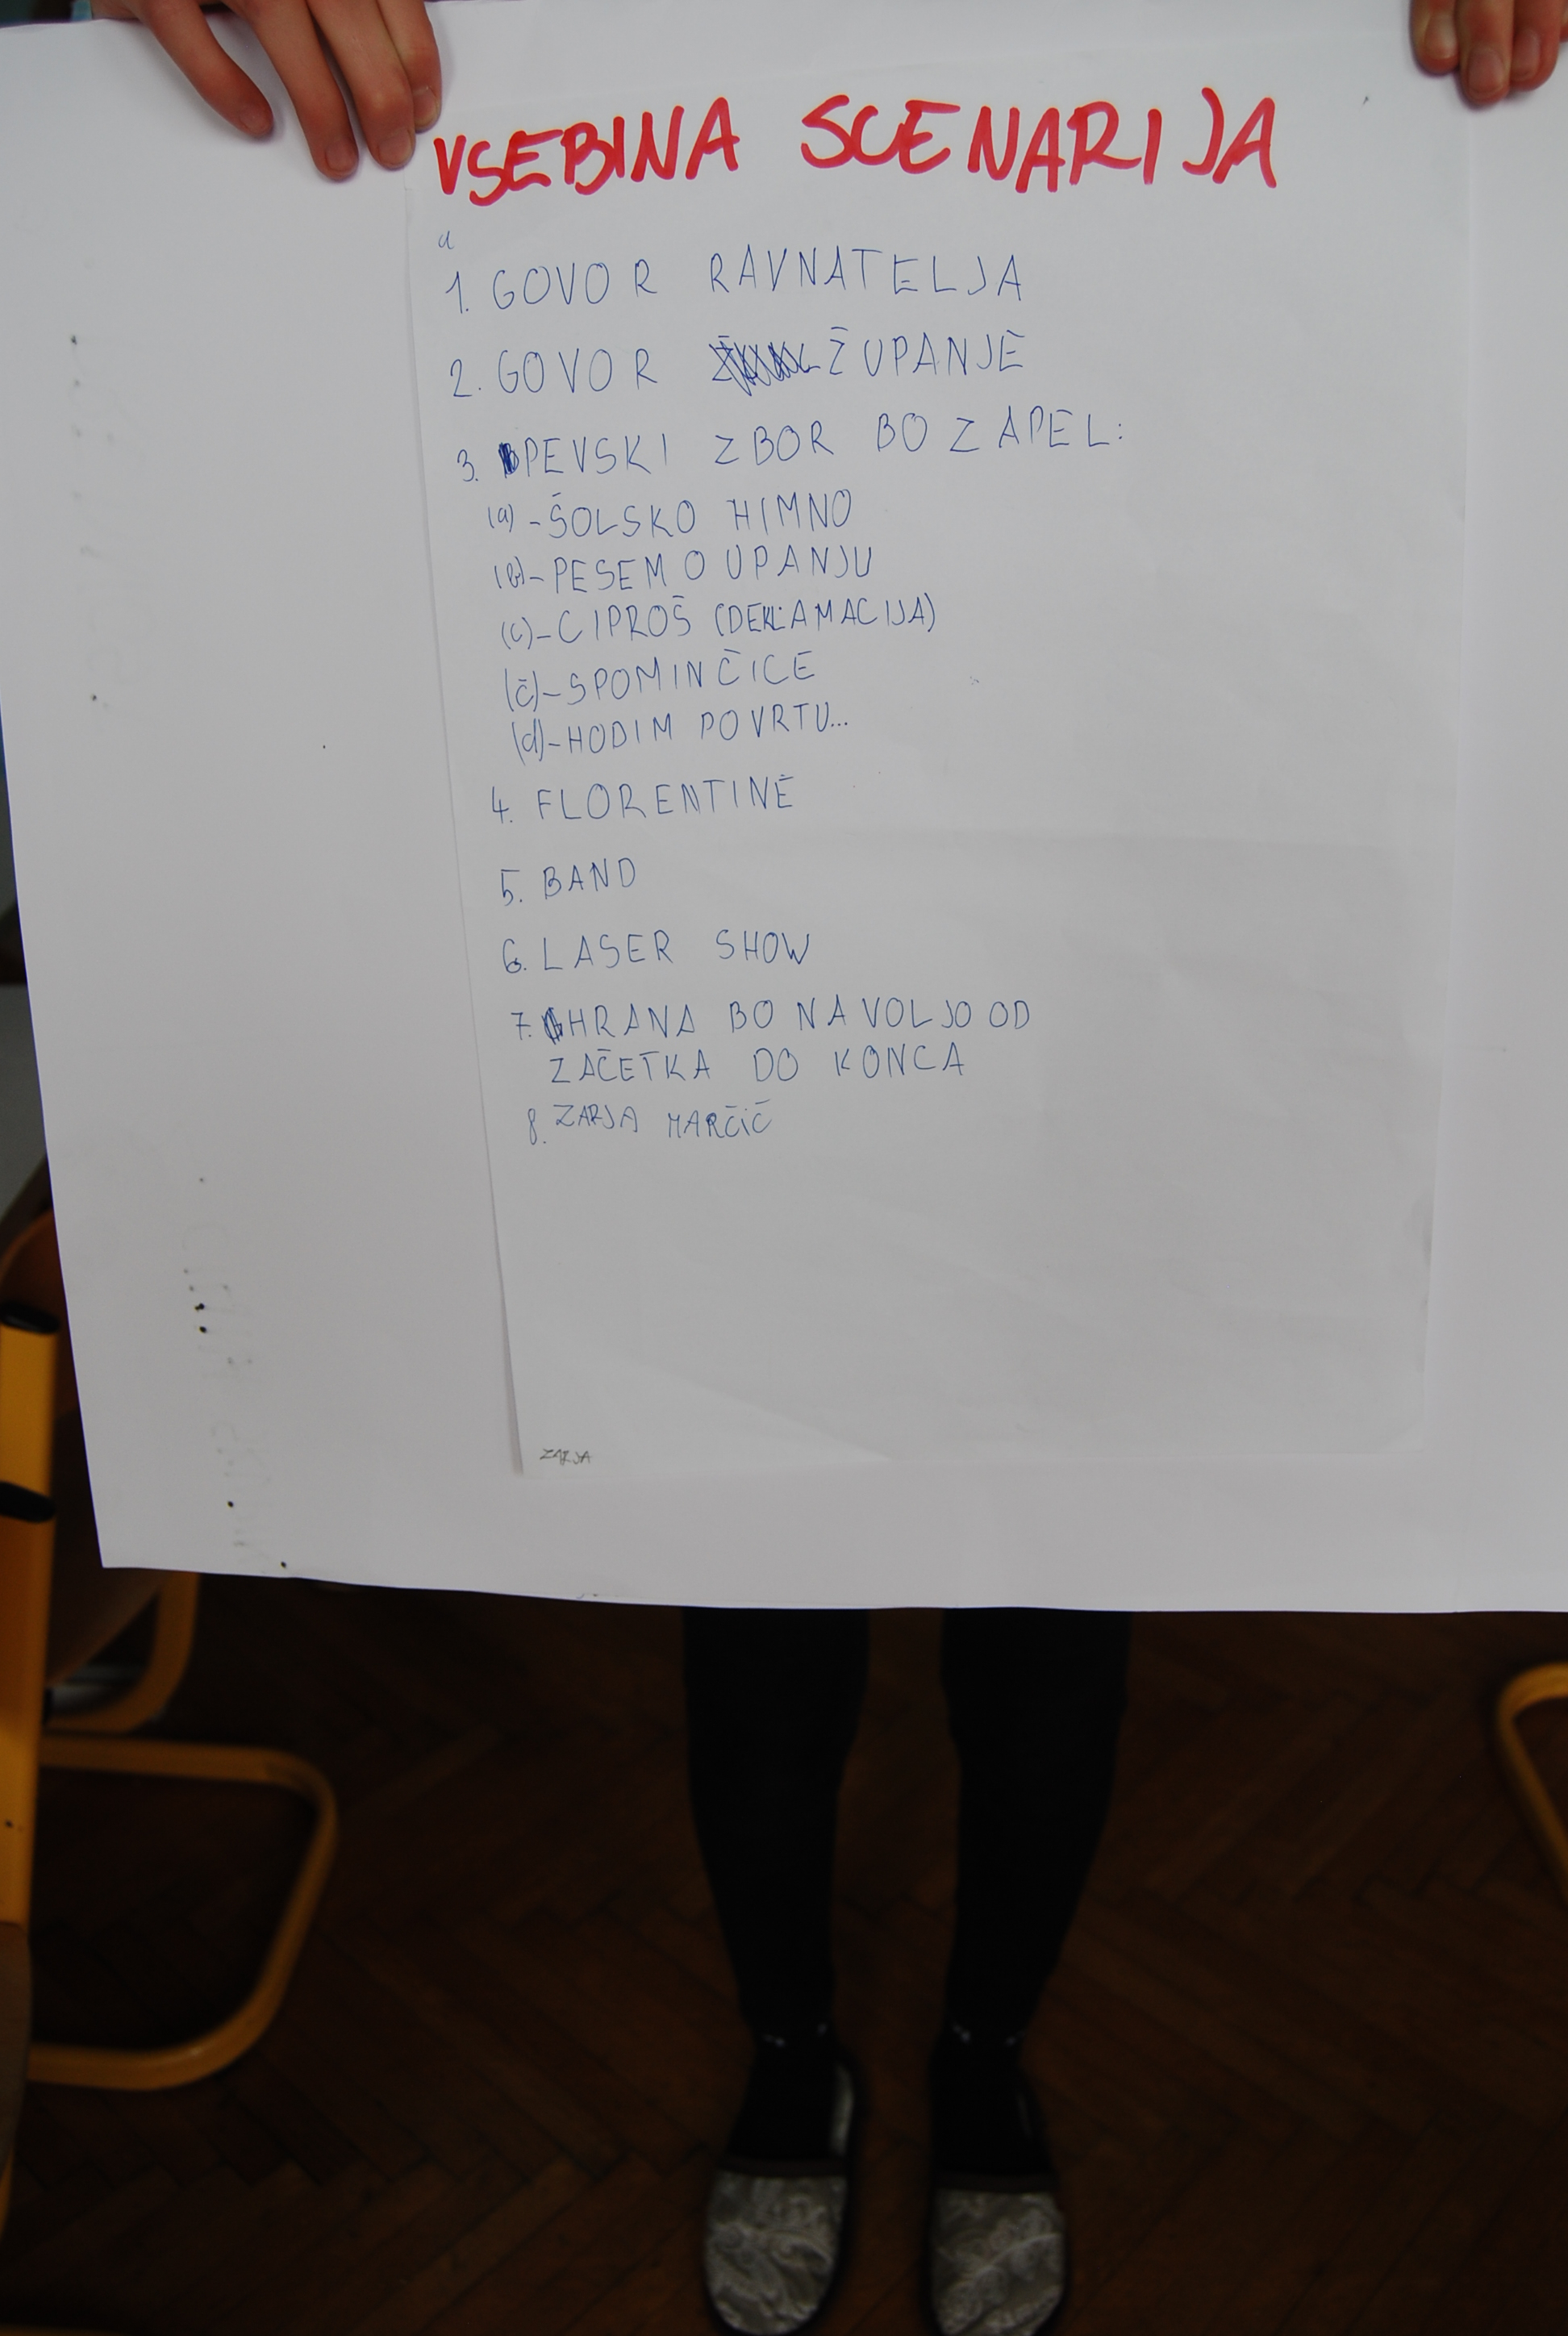 VSEBINA SCENARIJA
1. GOVOR RAVNATELJA
2. GOVOR ŽUPANJE
3. PEVSKI ZBOR BO ZAPEL:
(a) - ŠOLSKO HIMNO
(b) - PESEM O UPANJU
(c) - CIPROŠ (DEKLAMACIJA)
(č) - SPOMINČICE
(d) - HODIM PO VRTU...
4. FLORENTINE
5. BAND
6. LASER SHOW
7. HRANA BO NA VOLJO OD
ZAČETKA DO KONCA
8. ZARJA MARČIČ
ZARJA